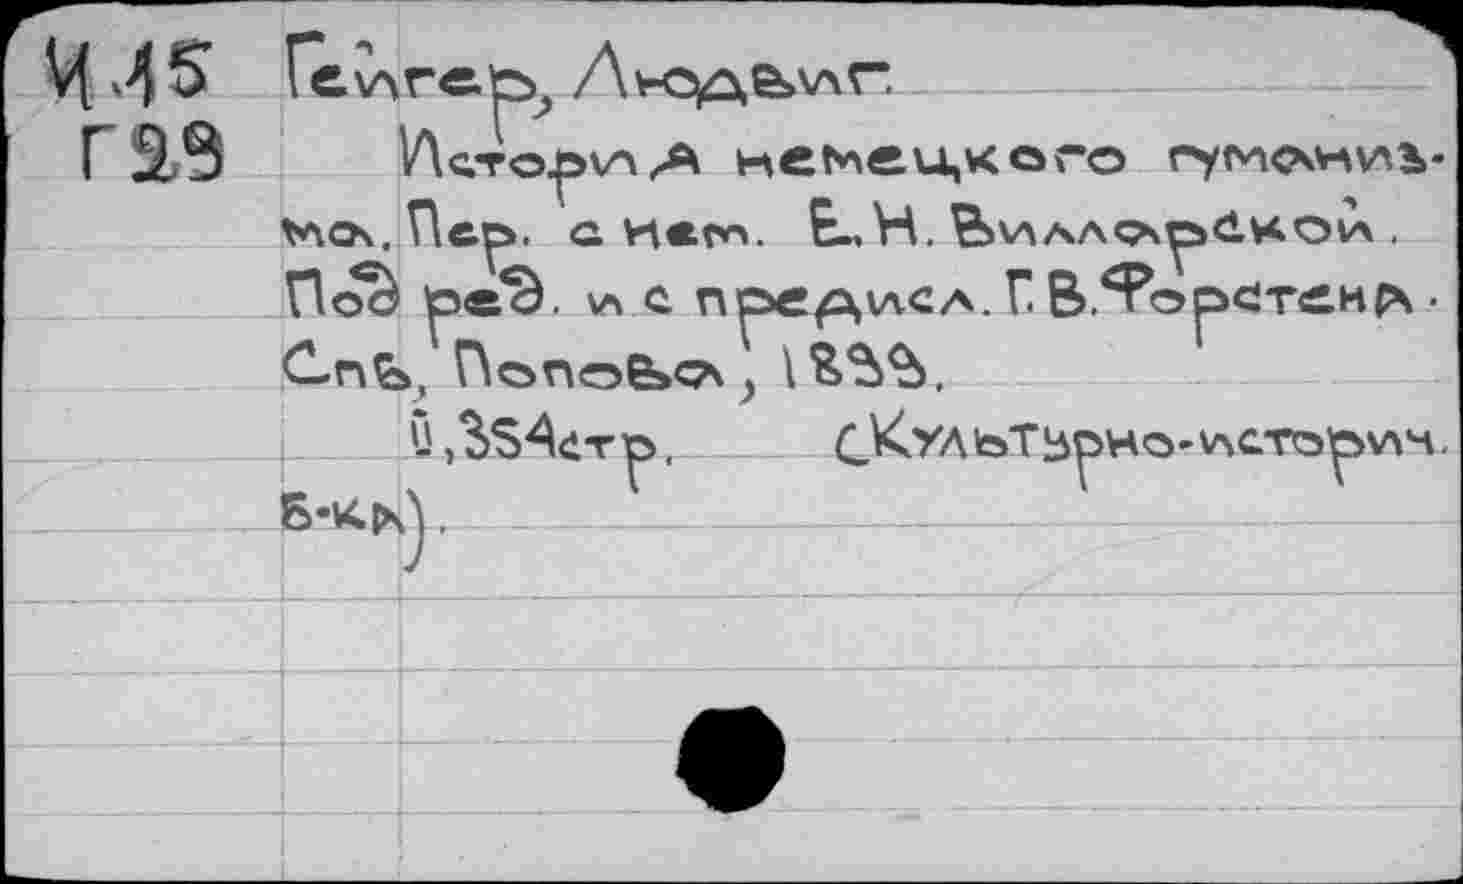 Ч45 Гейгер, Людвиг.
Г23 История немецкого гуманиз-
ма. Пер. с нем. Е.Н. Вилларской.
Под ред. и с предисл. Г.В. Форстена.
Спб, Попова, 1899.
II, 354 стр. (Культурно-историч.
Б-ка).